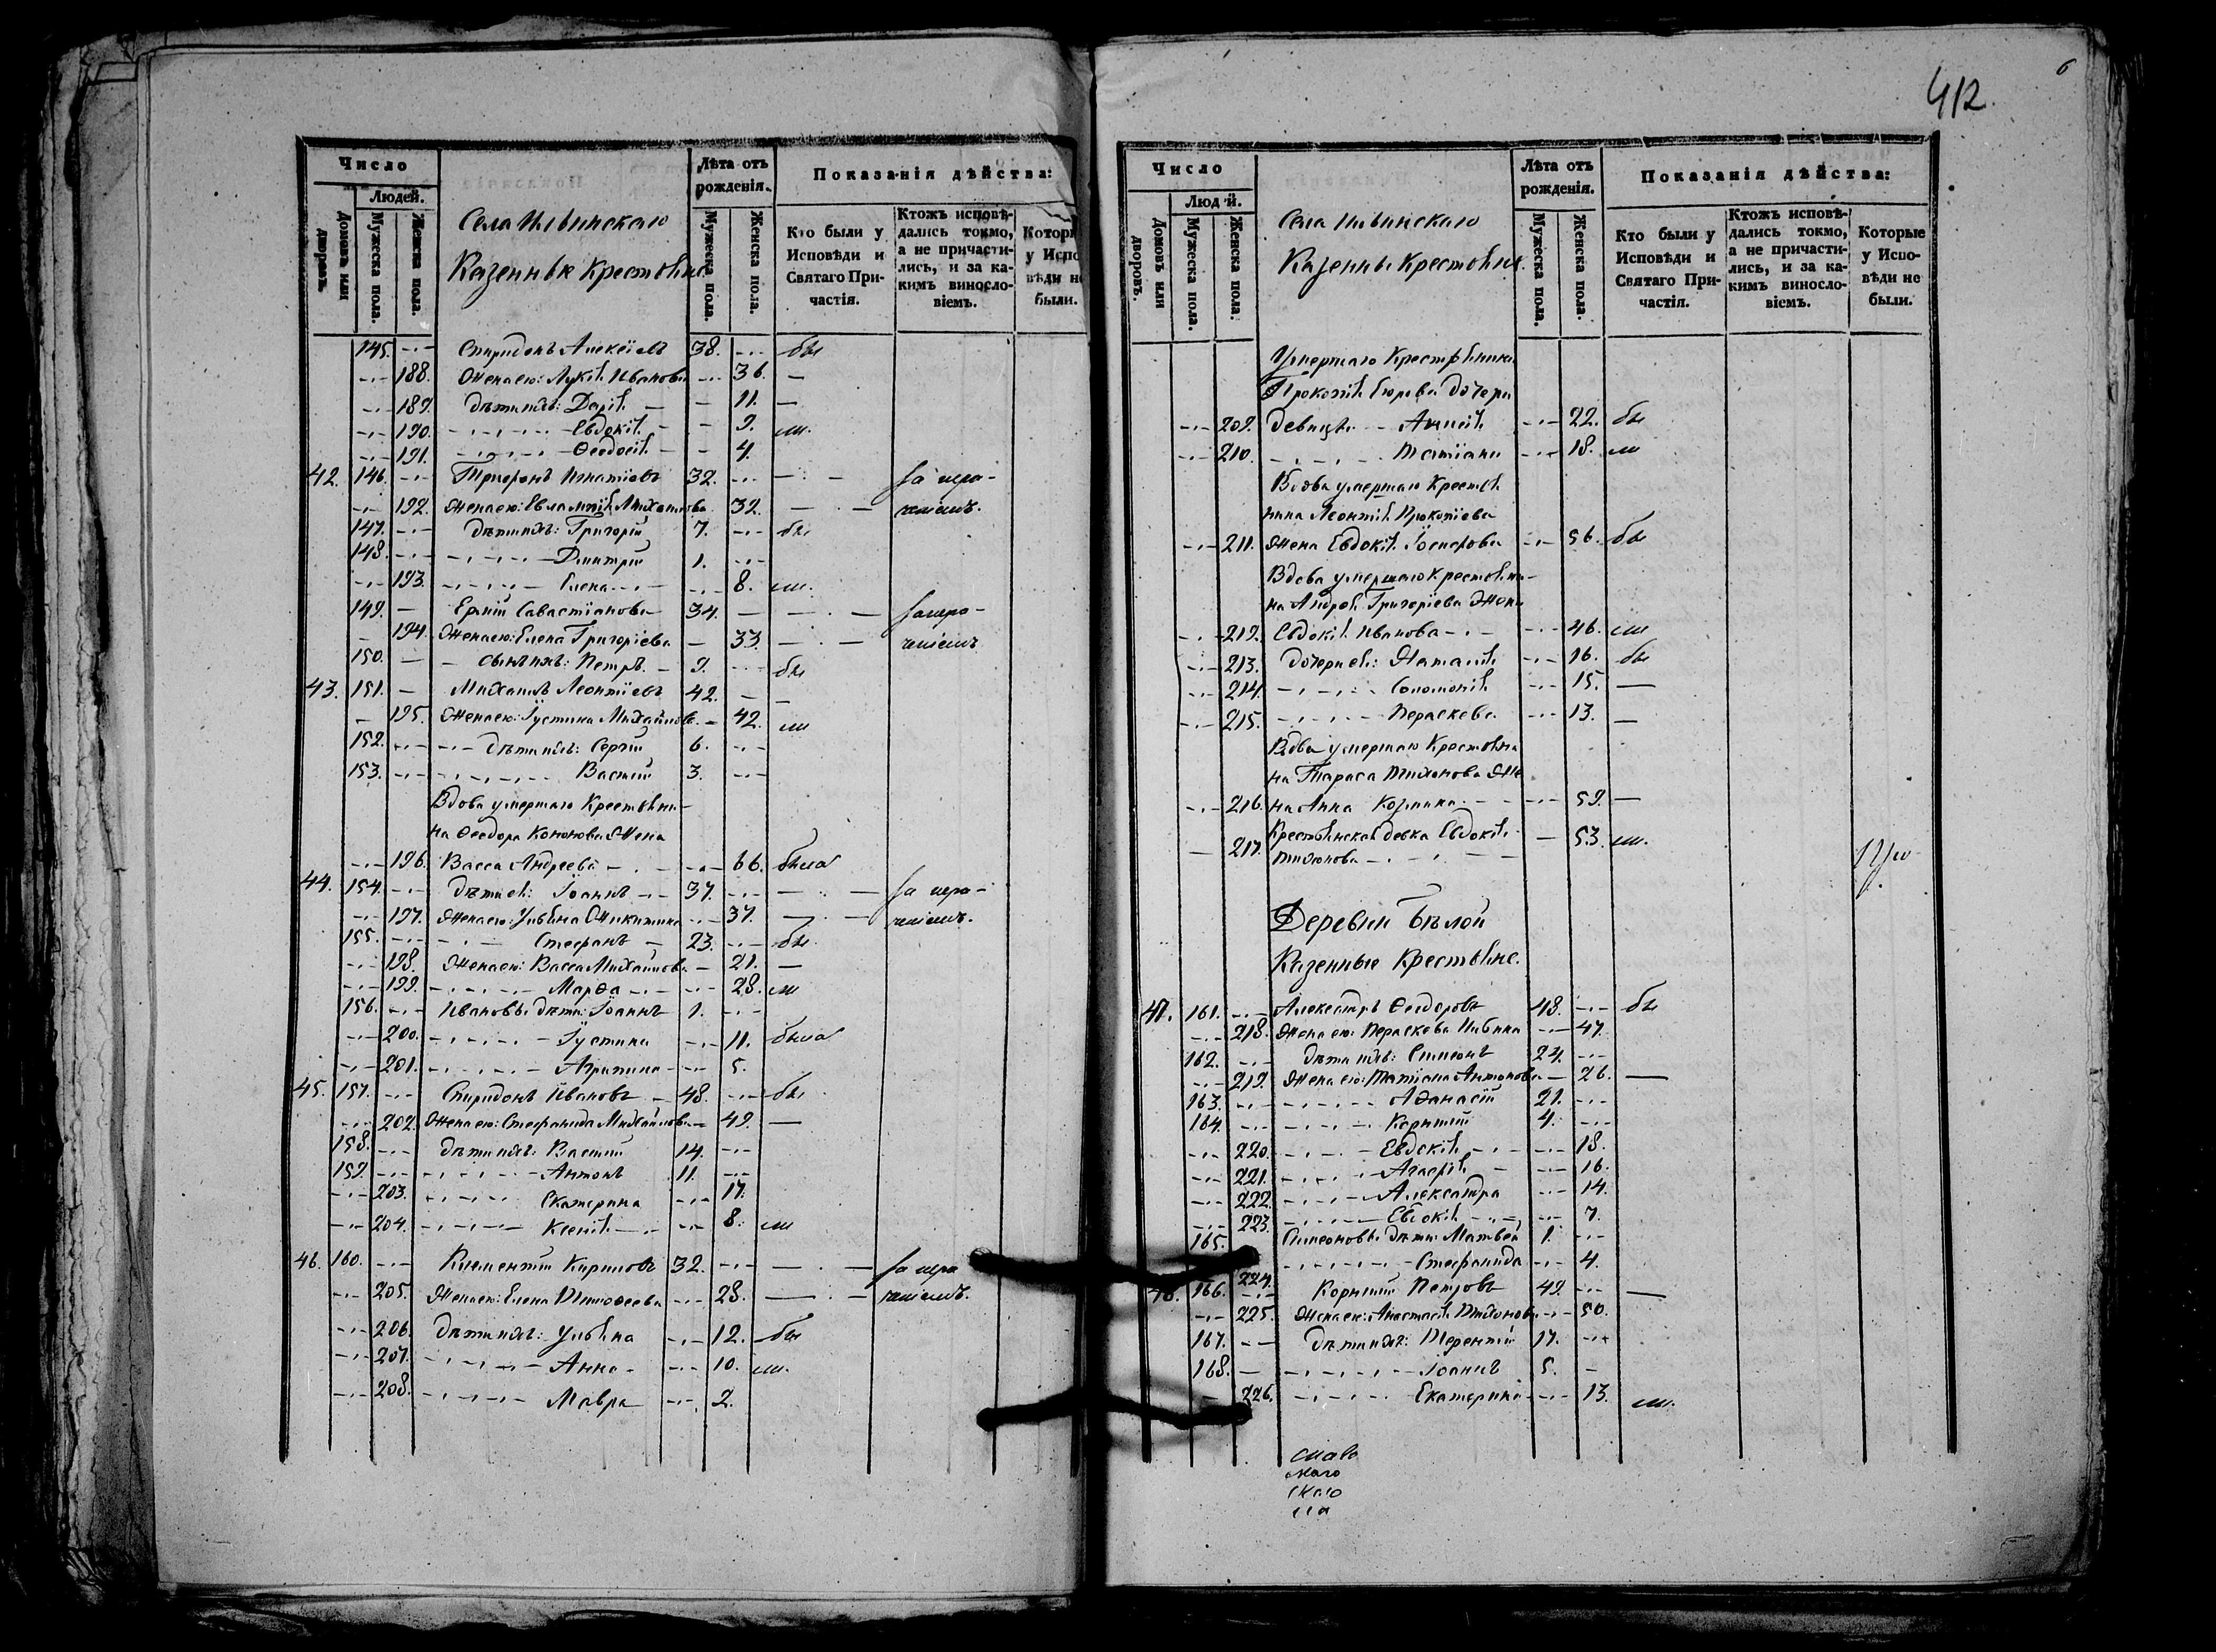 Число
Людей.
Домовъ или дворовъ.
Мужеска пола.
Женска пола.
Села Ильинскаго
Казенные Крестьяне
Лѣта отъ рожденія.
Мужеска пола.
Женска пола.
Показанія дѣйства:
Кто были у Исповѣди и Святаго Причастія.
Ктожъ исповѣдались токмо, а не причастились, и за какимъ винословіемъ.
Которы у Испо вѣди не были.
145. Спиридонъ Алексіевъ 38. бы
188. Жена его: Лукія Иванова 36. —
189. дѣти ихъ: Дарія — 11. —
190. Евдокія 9. ли.
191. Ѳеодосія 4.
42. 146. Трифонъ Игнатіевъ 32. за нера-
192. Жена его: Евлампія Михаилова 32. чениемъ.
147. дѣти ихъ: Григорій 7. бы
148. Димитрій 1.
193. Елена 8. ли.
149. Савастіановъ 34. за нера-
194. Жена его: Елена Григоріева 33. чениемъ
150. сынъ ихъ: Петръ 9. бы
43. 151. Михаилъ Леонтіевъ 42. —
195. Жена его: Іустина Михайлова 42. ли
152. дѣти ихъ: Сергій 6.
153. Василій 3.
Вдова умершаго Крестьяни-
на Ѳеодора Кононова Жена
196. Васса Андреева 66. была
44. 154. дѣти ея: Іоаннъ 37. за нера-
197. Жена его: Ульяна Никитина 37. чениемъ.
155. Стефанъ 23. бы
198. Жена его: Васса Михайлова 21. —
199. Марѳа 28. ли
156. Ивановы дѣти: Іоаннъ 1.
200. Іустина 11. была
201. Агрипина 5.
45. 157. Спиридонъ Ивановъ 48. бы
202. Жена его: Стефанида Михайлова 49. —
158. дѣти ихъ: Василій 14.
159. Антонъ 11.
203. Екатерина 17.
204. Ксенія 8. ли
46. 160. Климентій Кириловъ 32. за нера
205. Жена его: Елена Тимоѳеева 28. чениемъ.
206. Дѣти ихъ: Ульяна 12. бы
207. Анна 10. ли.
208. Мавра 2.
6
412.
Число
Люд й.
Домовъ или дворовъ.
Мужеска пола.
Женска пола.
Села Ильинскаго
Казенны Крестьяне.
Лѣта отъ рожденія.
Мужеска пола.
Женска пола.
Показанія дѣйства:
Кто были у Исповѣди и Святаго Причастія.
Ктожъ исповѣдались токмо, а не причастились, и за какимъ винословіемъ.
Которые у Исповѣди не были.
Умершаго Крестьянина
Прокопія дочери
209. девицы 22. бы
210. Татіана 18. ли
Вдова умершаго Крестья
нина Леонтія Прокопіева
211. Жена Евдокія Іосифова 56. бы
Вдова умершаго Крестьяни-
на Андрея Григоріева Жена
212. Евдокія Иванова 46. ли
213. дочери ея: Наталія 16. бы
214. Соломонія 15. —
215. Параскева 13. —
Вдова умершаго Крестьяни
на Тараса Тихонова Же
216. на Анна Козмина 59. —
217. Крестьянская девка Евдокія 53. ли.
Тихонова
Деревни Бѣлой
Казенные Крестьяне.
47. 161. Александръ Ѳеодоровъ 48. бы
218. Жена его: Параскева Ильина 47.
162. дѣти ихъ: Симеонъ 24.
219. Жена его: Татіана Антонова 26. —
163. Аѳанасій 21.
164. Корнилій 4.
220. Евдокія 18.
221. Агафія 16.
222. Александра 14.
223. Евдокія 7.
165. Симеоновы дѣти: Матвей 1.
224. Стефанида 4.
48. 166. Корнилій Петровъ 49. —
225. Жена его: Анастасія Тихонова 50.
167. дѣти ихъ: Терентій 17.
168. Іоаннъ 5.
226. Екатерина 13. ли.